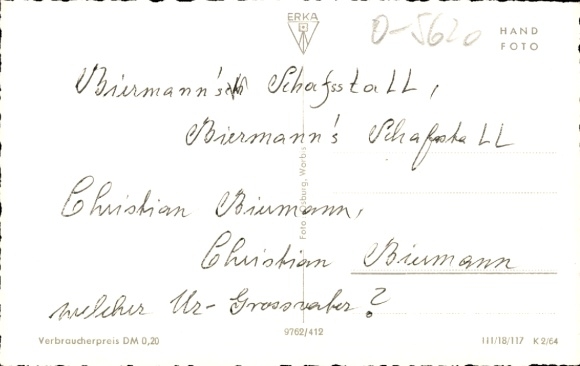 ERKA
D-5620
HAND
FOTO
Biermann's Schafsstall,
Biermann's Schafstall
Christian Biermann,
Christian Biermann
welcher Ur-Grossvater?
Verbraucherpreis DM 0,20
9762/412
III/18/117 K 2/64
Foto Worbis